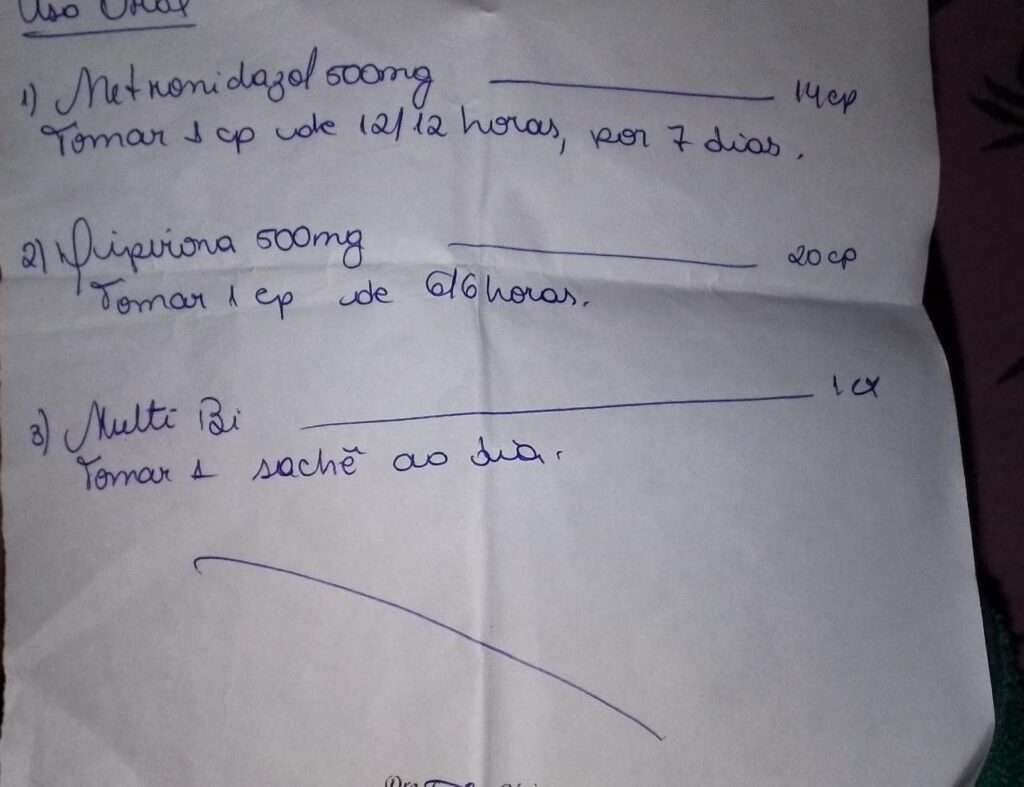 Uso Oral
1) Metronidazol 500mg 14 cp
Tomar 1 cp de 12/12 horas, por 7 dias.
2) Dipirona 500mg 20 cp
Tomar 1 cp de 6/6 horas.
3) Multi Bi 1 cx
Tomar 1 sachê ao dia.
Dra